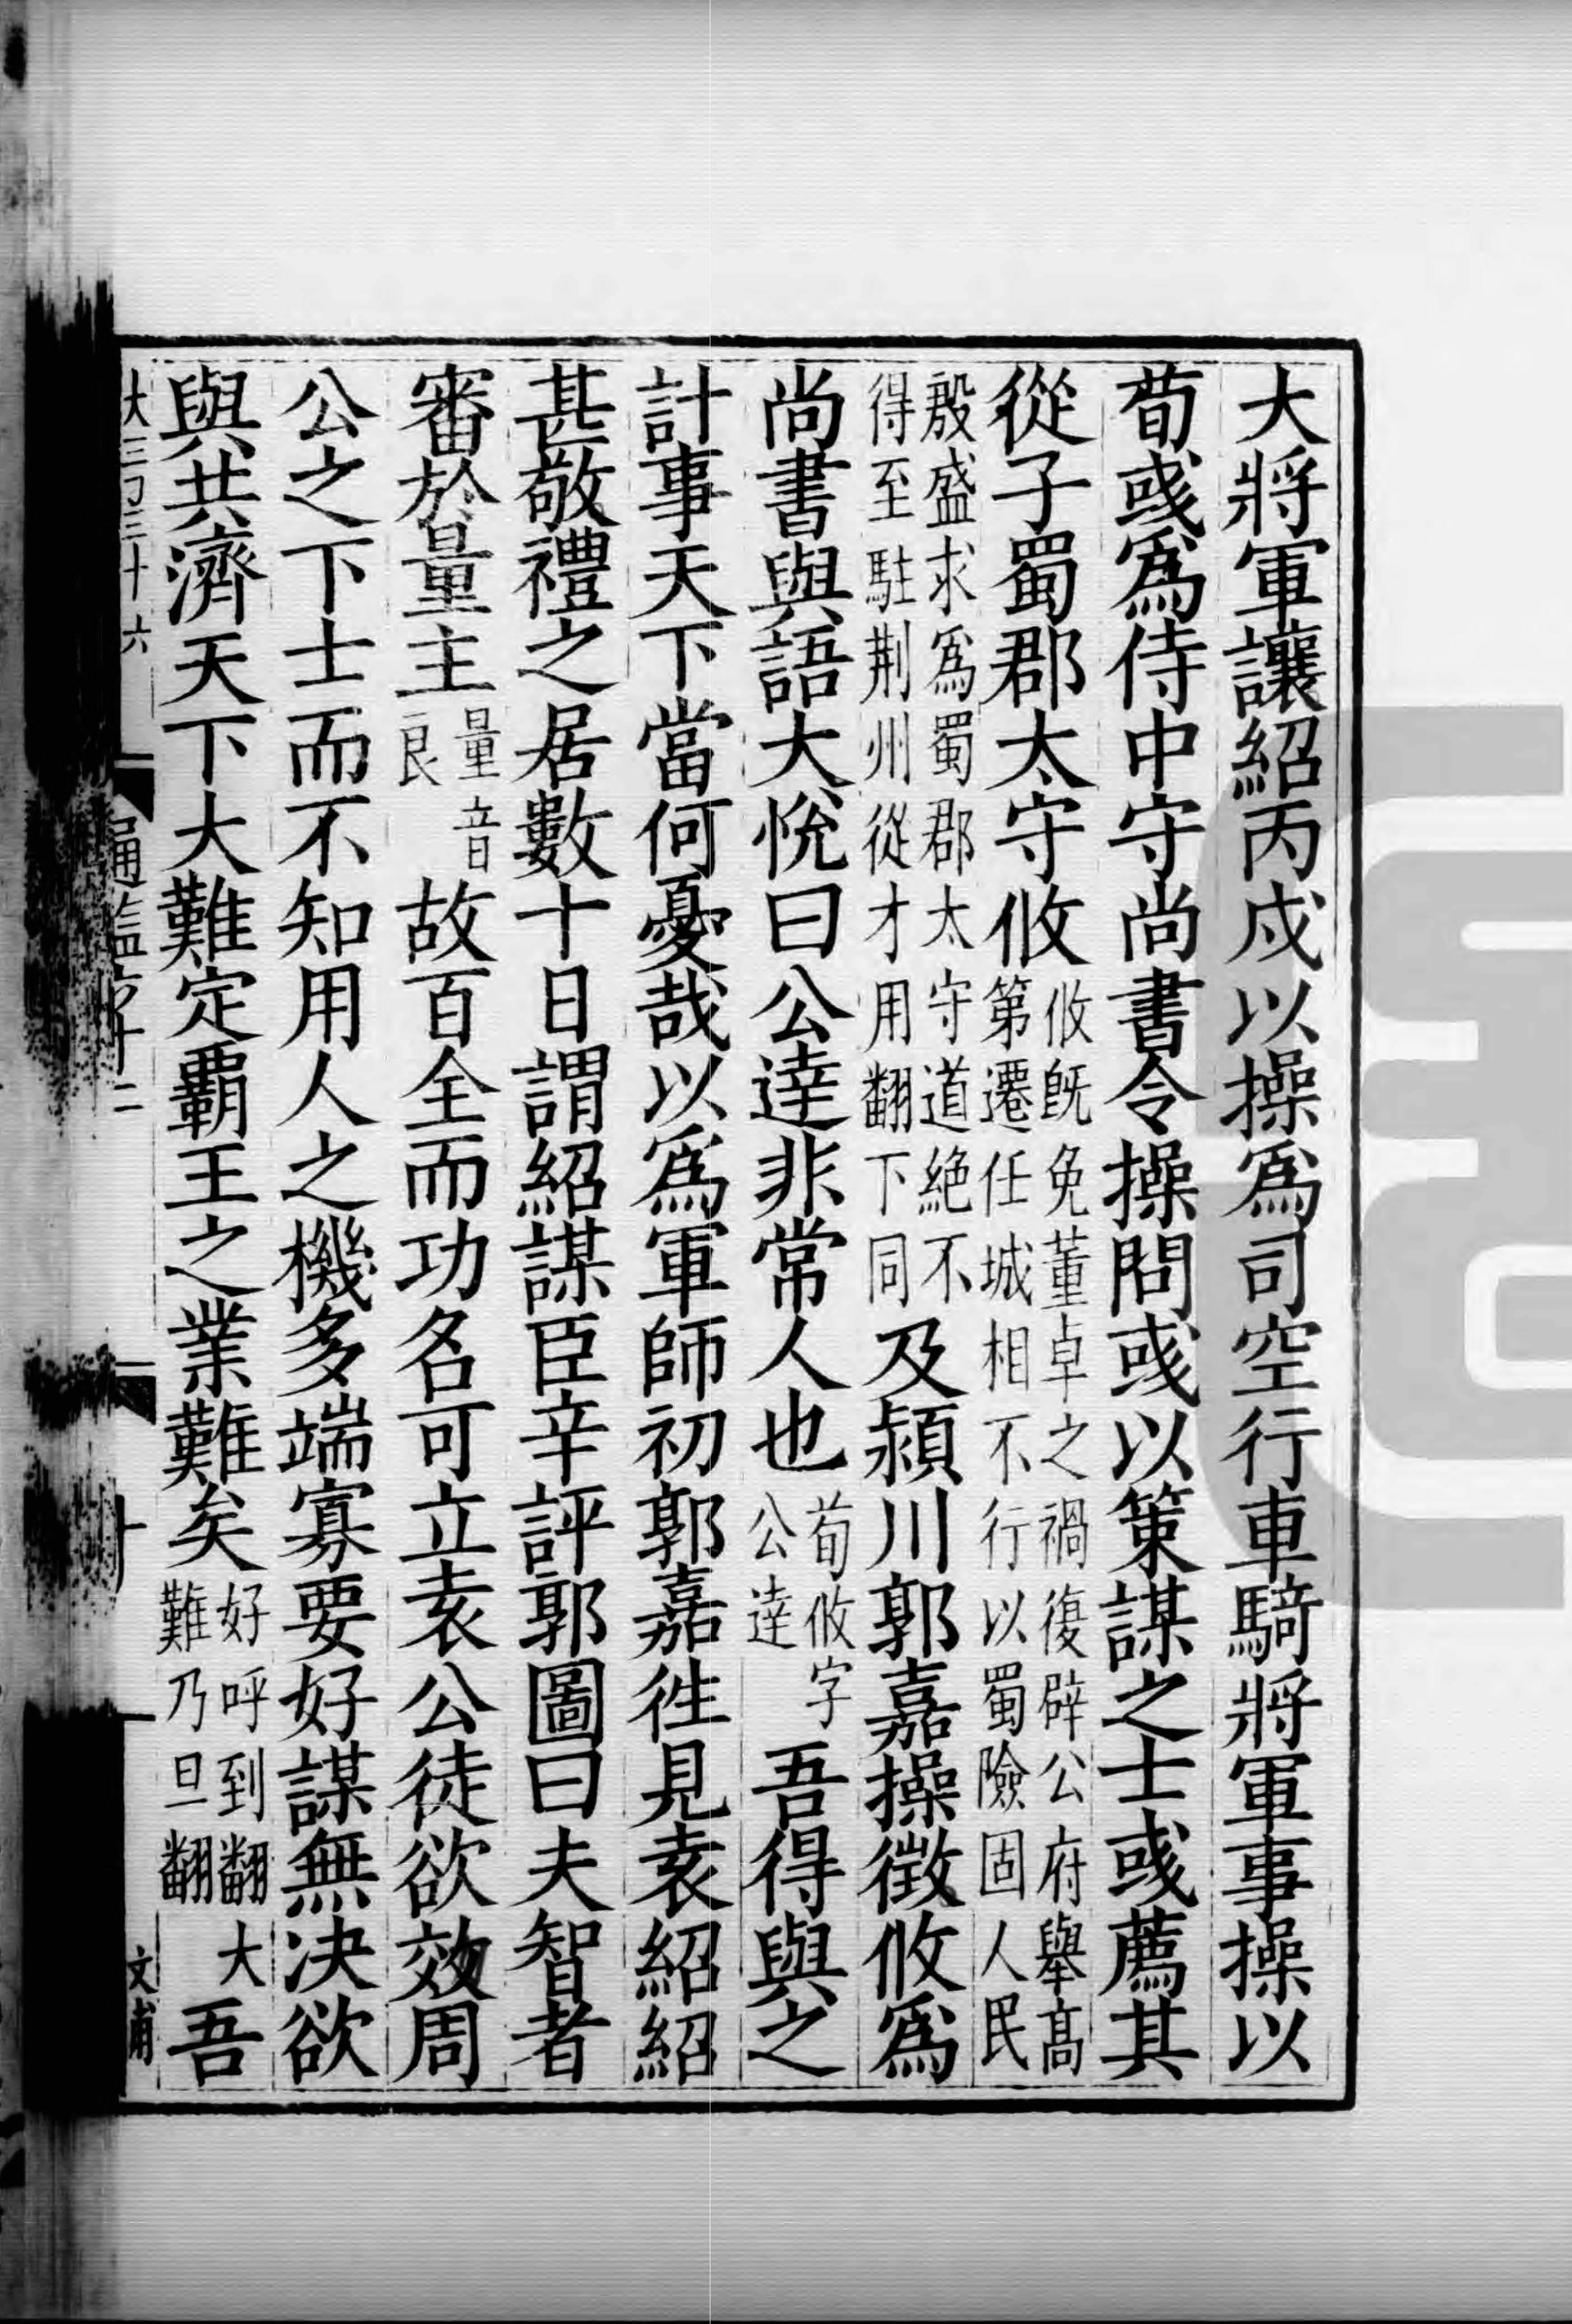 大將軍讓紹丙戌以操爲司空行車騎將軍事操以
荀彧爲侍中守尚書令操問彧以策謀之士彧薦其
從子蜀郡太守攸攸旣免董卓之禍復辟公府舉高第遷任城相不行以蜀險固人民
殷盛求爲蜀郡太守道絕不得至駐荆州從才用翻下同及潁川郭嘉操徵攸爲
尚書與語大悅曰公達非常人也荀攸字公達吾得與之
計事天下當何憂哉以爲軍師初郭嘉往見袁紹紹
甚敬禮之居數十日謂紹謀臣辛評郭圖曰夫智者
審於量主量音良故百全而功名可立袁公徒欲效周
公之下士而不知用人之機多端寡要好謀無决欲
與共濟天下大難定霸王之業難矣好呼到翻難乃旦翻大吾
大三刁三十六
通鑑六十二
文甫